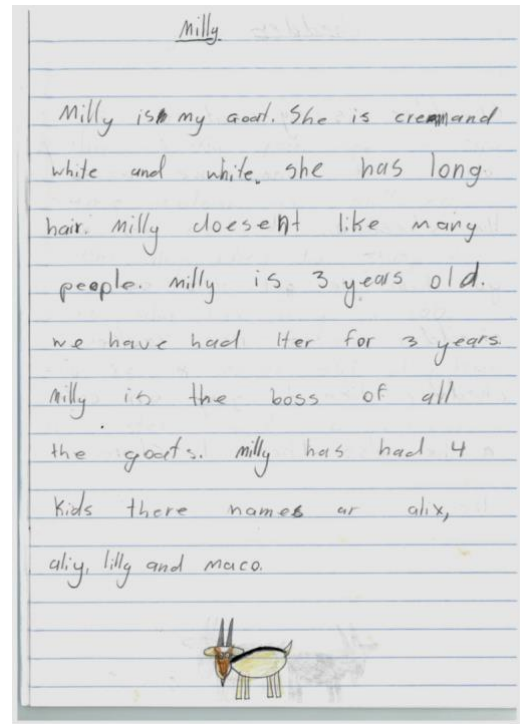 Milly.
Milly is my Goat. She is cremand
white and white. she has long
hair. Milly doesent like many
people. Milly is 3 years old.
we have had Her for 3 years.
Milly is the boss of all
the goats. Milly has had 4
Kids there names ar alix,
aliy, lilly and maco.